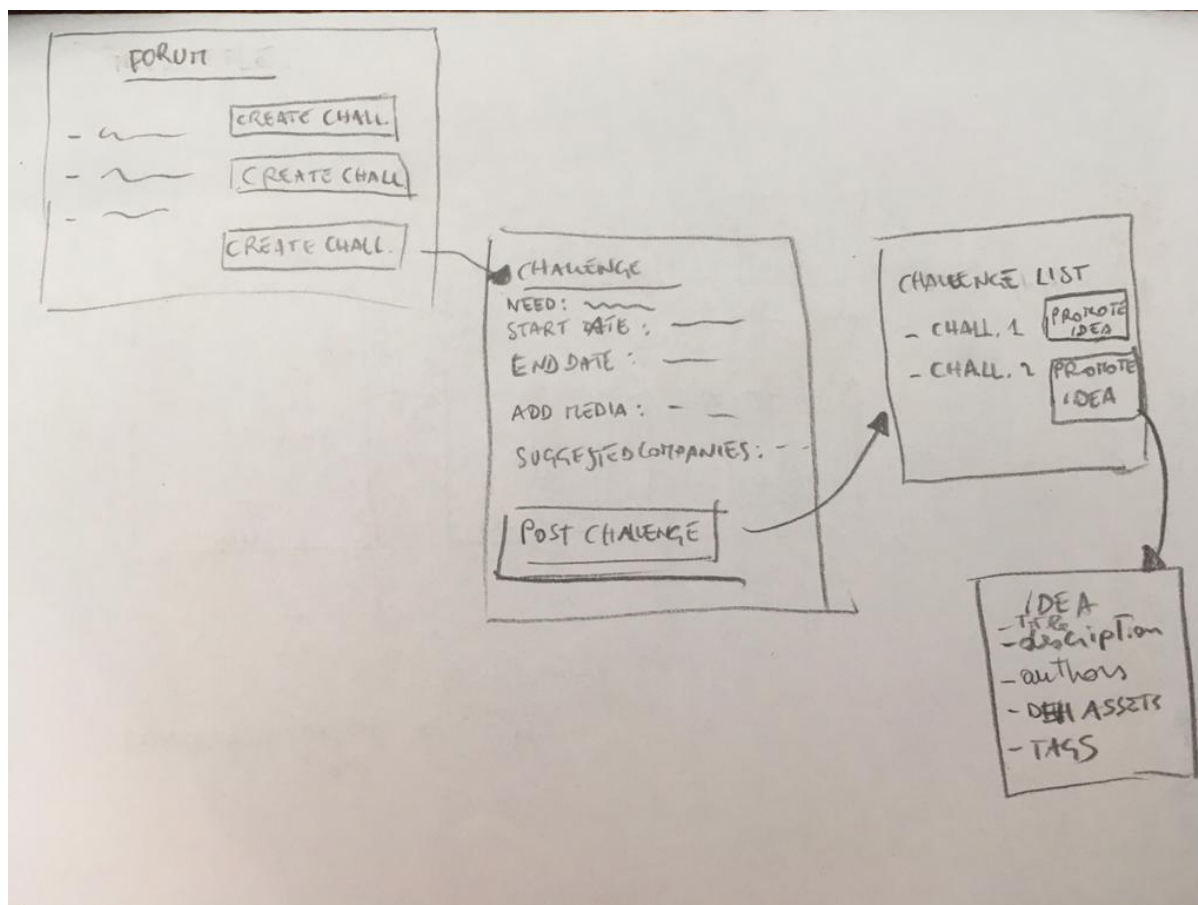 FORUM
CREATE CHALL.
CREATE CHALL
CREATE CHALL.
CHALLENGE
NEED:
START DATE :
END DATE :
ADD MEDIA :
SUGGESTED COMPANIES:
POST CHALLENGE
CHALLENGE LIST
- CHALL. 1
PROMOTE
IDEA
- CHALL. 2
PROMOTE
IDEA
IDEA
- description
- authors
- DEH ASSETS
- TAGS